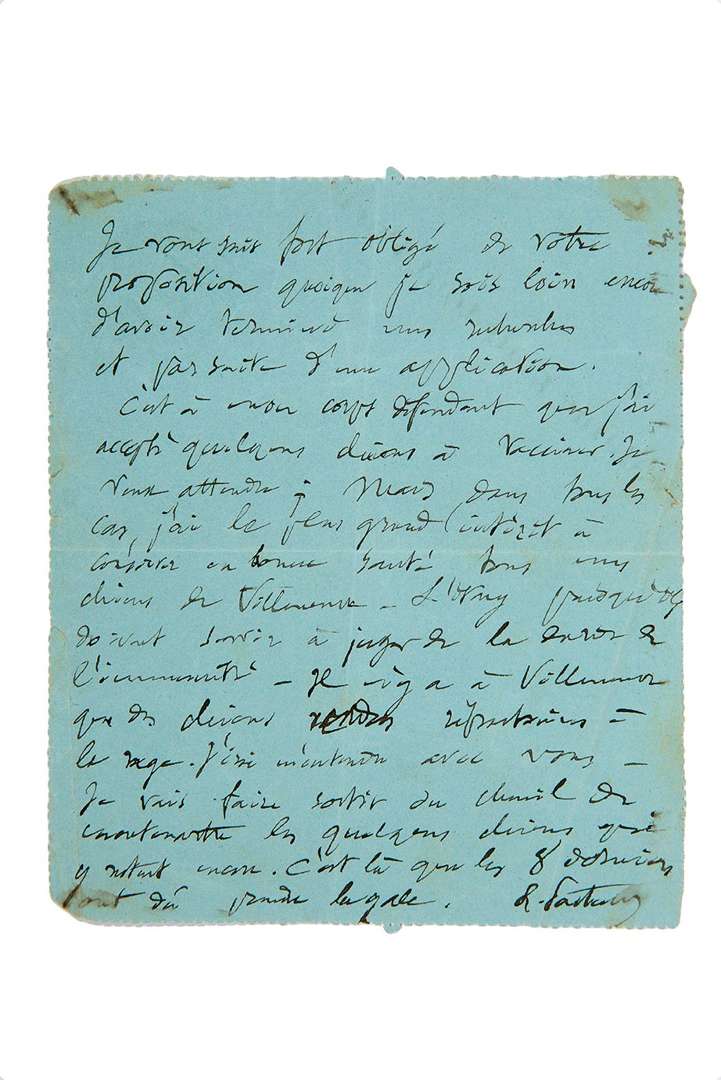 Je vous suis fort obligé de votre
proposition quoique je sois loin encore
d'avoir terminé mes recherches
et par suite d'une application.
C'est à mon corps défendant que j'ai
accepté quelques chiens à vacciner. Je
veux attendre; Mais dans tous les
cas, j'ai le plus grand intérêt à
conserver en bonne santé tous mes
chiens de Villeneuve - L'Etang puisqu'ils
doivent servir à juger de la durée de
l'immunité - Il n'y a à Villeneuve
que des chiens rendus réfractaires à
la rage. J'irai m'entendre avec vous -
Je vais faire sortir du chenil de
les quelques chiens qui
y restent encore. C'est là que les 8 derniers
ont dû prendre la gale. L. Pasteur